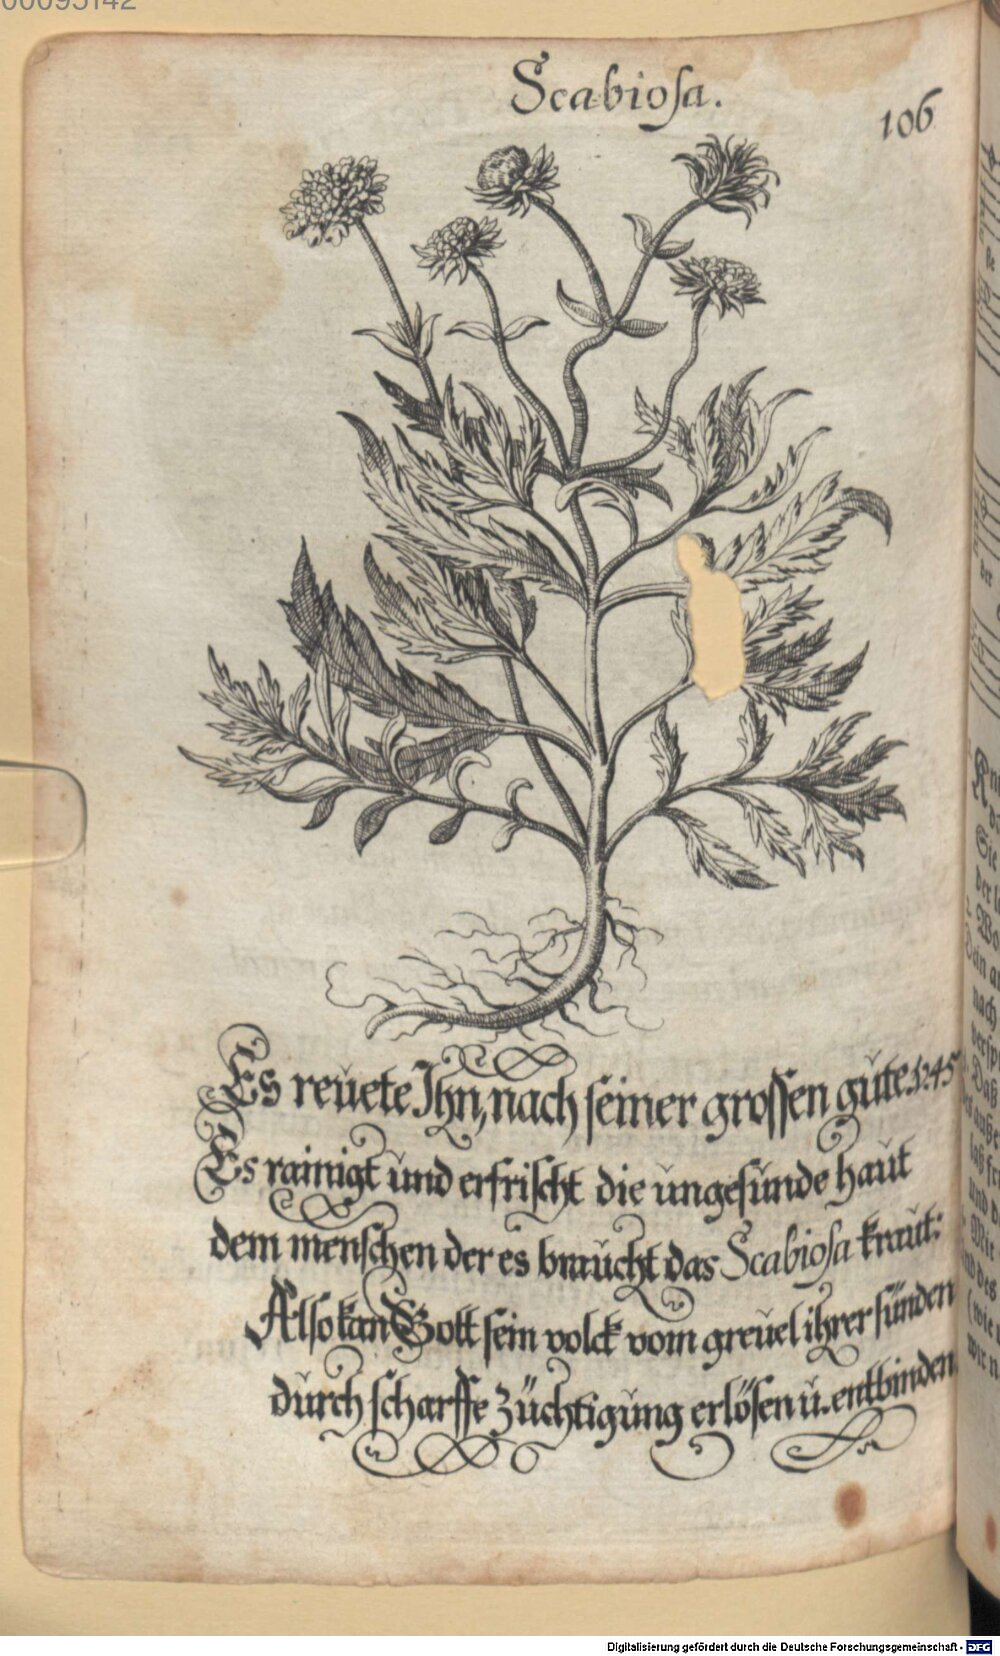 00095142
Scabiosa.
106
Es reuete Ihn, nach seiner grossen gute. 1245
Es rainigt und erfrischt die ungesunde haut
dem menschen der es braucht das Scabiosa kraut:
Also kan Gott sein volck vom greuel ihrer sünden
durch scharffe züchtigung erlösen u. entbinden.
Digitalisierung gefördert durch die Deutsche Forschungsgemeinschaft - DFG